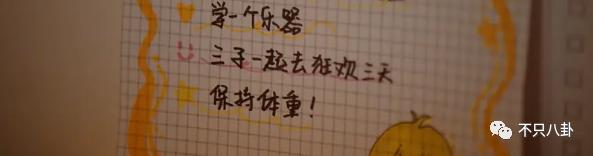 学一个乐器
三子一起去狂欢三天
保持体重！
不只八卦